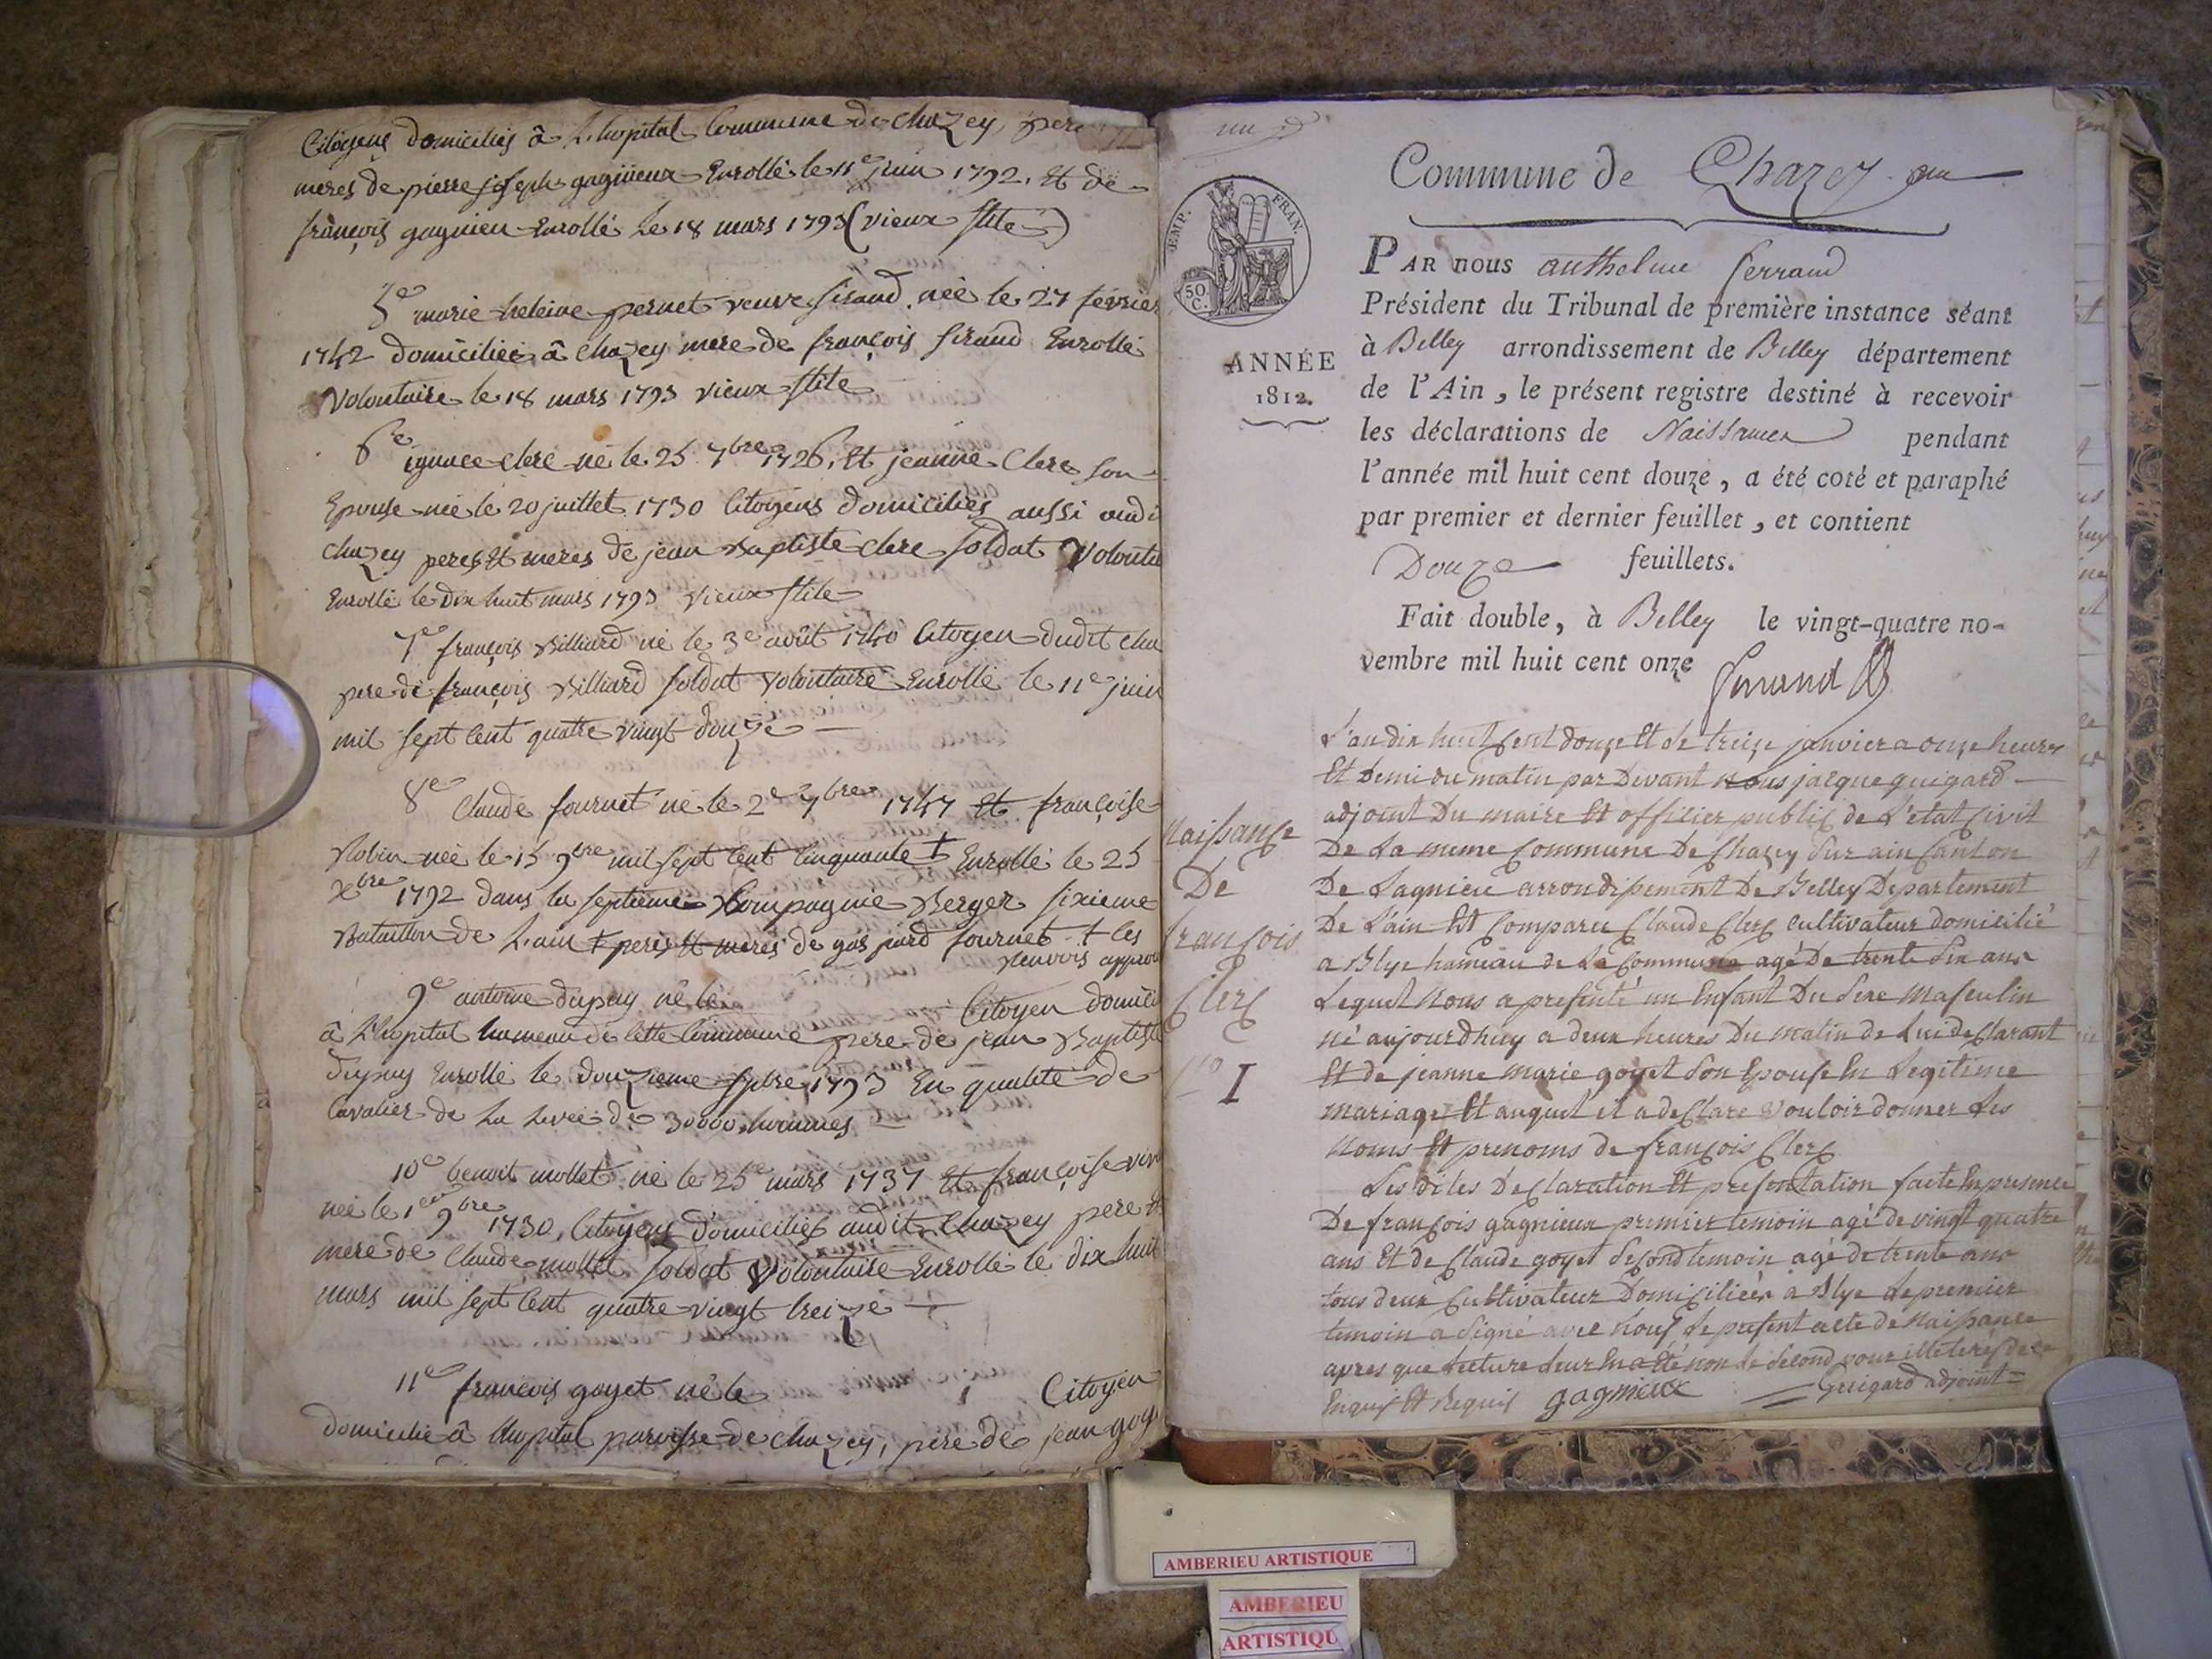 Citoyens domiciliés â L'hopital Commune de Chazey, pere
meres de pierre joseph gagnieux Enrollé le 11e juin 1792. Et de
françois gagnieu Enrollé Le 18 mars 1793 (vieux stile)
5e marie heleine pernet veuve siraud née le 27 février
1742 domiciliée â Chazey mere de françois siraud Enrollé
Volontaire le 18 mars 1793 vieux stile
6e ignace clerc né le 25 7bre 1726. Et jeanne Clerc son
Epouse née le 20 juillet 1730 Citoyens domiciliés aussi audi
chazey peres Et meres de jean Baptiste clerc soldat Volontai
Enrollé le Dix huit mars 1793 vieux stile
7e françois Billiard né le 3e août 1740 Citoyen dudit cha
pere de françois Billiard soldat volontaire Enrollé le 11e juin
mil sept Cent quatre vingt douze
8e Claude fournet né le 2e 7bre 1747 Et françoise
Robin née le 15 9bre mil sept Cent Cinquante † Enrollé le 25
Xbre 1792 dans la septieme Compagnie Berger sixieme
Bataillon de L'ain † peres Et meres de gas pard fournet † les
renvois approu
9e antoine dupuy né le Citoyen domici
â L'hopital hameau de Cette Commune pere de jean Baptiste
dupuy Enrollé le douzieme 1793 En qualité de
Cavalier de La Levée de 30000 hommes
10e benoit mollet né le 25e mars 1737 Et françoise
née le 1er 9bre 1730, Citoyens domiciliés audit Chazey pere Et
mere de Claude mollet soldat Volontaire Enrollé le dix huit
mars mil sept Cent quatre vingt treize
11e françois goyet né le Citoyen
domicilié â L'hopital paroisse de Chazey, pere de jean goy
un
EMP. FRAN.
50. C.
ANNÉE
1812.
Commune de Chazey
PAR nous anthelme ferrand
Président du Tribunal de première instance séant
à Belley arrondissement de Belley département
de l'Ain, le présent registre destiné à recevoir
les déclarations de Naissances pendant
l'année mil huit cent douze, a été coté et paraphé
par premier et dernier feuillet, et contient
Douze feuillets.
Fait double, à Belley le vingt-quatre no-
vembre mil huit cent onze
Naissance
De
françois
Clerc
no I
L'an dix huit Cent douze Et le treize janvier a onze heures
Et Demi du matin par Devant Nous jacque guigard
adjoint Du maire Et officier public de L'etat Civil
De La meme Commune De Chazey sur ain Canton
De Lagnieu arrondissement De Belley Departement
De L'ain Est Comparu Claude Clerc cultivateur domicilié
a Blye hameau de La Commune agé De trente six ans
Lequel Nous a presenté un Enfant Du sexe Masculin
né aujourdhuy a deux heures Du matin de Lui deClarant
Et de jeanne marie goyet son Epouse En Legitime
mariage Et auquel il a deClare vouloir donner Les
Noms Et prenoms de françois Clerc
Les dites DeClaration Et presentation faite En presence
De françois gagnieux premier temoin agé de vingt quatre
ans Et de Claude goyet second temoin agé de trente ans
tous deux Cultivateur DomiCiliés à Blye Le premier
temoin a signé avec Nous Le present acte de Naissance
apres que Lecture Leur En a Eté non Le second pour illeteré de ce
Enquis Et Requis gagnieux Guigard adjoint
AMBERIEU ARTISTIQUE
AMBERIEU
ARTISTIQU